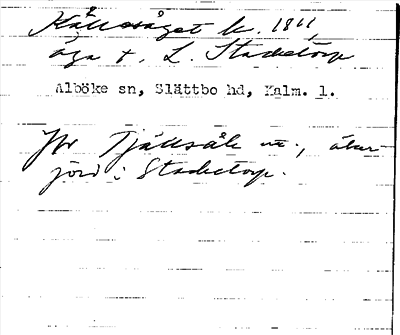 Källesåget k. 1811,
äga t. L. Stacketorp
Alböke sn, Slättbo hd, Kalm. l.
Jfr Tjällsåk m., åker-
jord i Stacketorp.